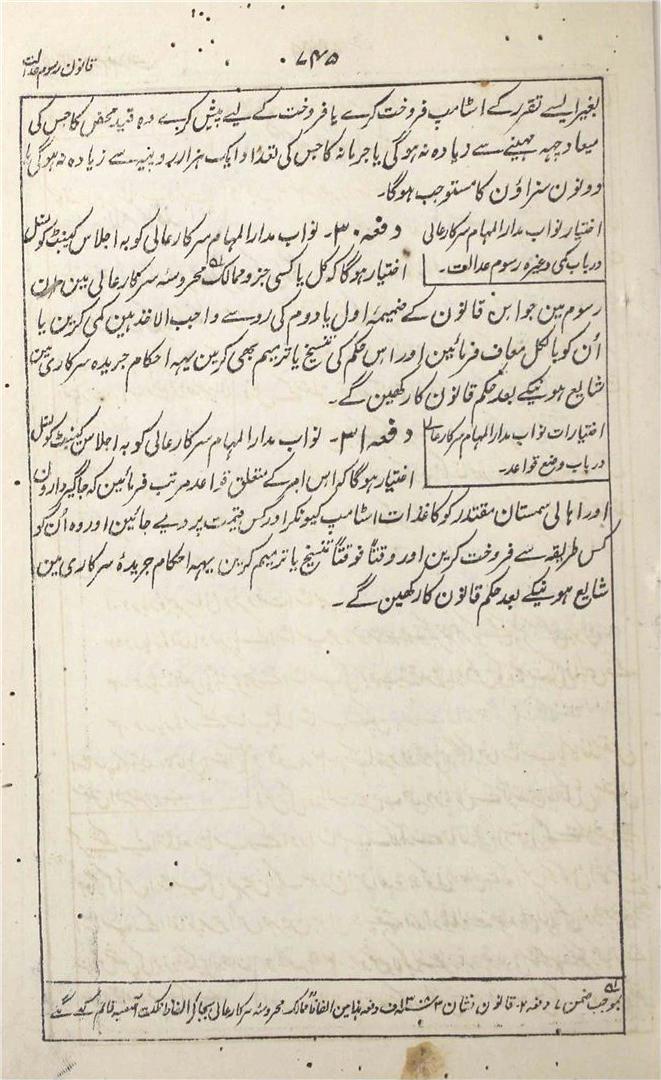 قانون رسوم عدالت
۷۴۵
بغیر ایسے تقرر کے اسٹامپ فروخت کرے یا فروخت کے لیے پیش کرے وہ قید محض کا جس کی
میعاد چہہ مہینے سے زیادہ نہ ہوگی یا جرمانہ کا جس کی تعداد ایک ہزار روپیہ سے زیادہ نہ ہوگی یا
دونون سزاؤن کا مستوجب ہوگا۔
اختیار نواب مدارالمہام سرکارعالی
درباب کمی وغیرہ رسوم عدالت۔
دفعہ ۳۰۔ نواب مدارالمہام سرکارعالی کو بہ اجلاس کیبنٹ کونسل
اختیار ہوگا کہ کل یا کسی جزو ممالک محروسہ سرکارعالی مین اون
رسوم مین جو اس قانون کے ضمیمہ اول یا دوم کی رو سے واجب الاخذ ہین کمی کرین یا
اُن کو بالکل معاف فرمائین اور اس حکم کی تنسیخ یا ترمیم بھی کرین یہہ احکام جریدہ سرکاری مین
شایع ہونیکے بعد حکم قانون کا رکھین گے۔
اختیارات نواب مدارالمہام سرکارعالی
درباب وضع قواعد۔
دفعہ ۳۱۔ نواب مدارالمہام سرکارعالی کو بہ اجلاس کیبنٹ کونسل
اختیار ہوگا کہ اس امر کے متعلق قواعد مرتب فرمائین کہ جاگیردارون
اور اہالی سمستان مقتدر کو کاغذات اسٹامپ کیونکر اور کس قیمت پر دیے جائین اور وہ اُن کو
کس طریقہ سے فروخت کرین اور وقتاً فوقتاً تنسیخ یا ترمیم کرین یہہ احکام جریدۂ سرکاری مین
شایع ہونیکے بعد حکم قانون کا رکھین گے۔
بموجب ضمن ۷ دفعہ ۲ قانون نشان ۳ ف دفعہ ہذا مین الفاظ ممالک محروسہ سرکارعالی بجائے الفاظ مملکت آصفیہ قائم کیے گئے